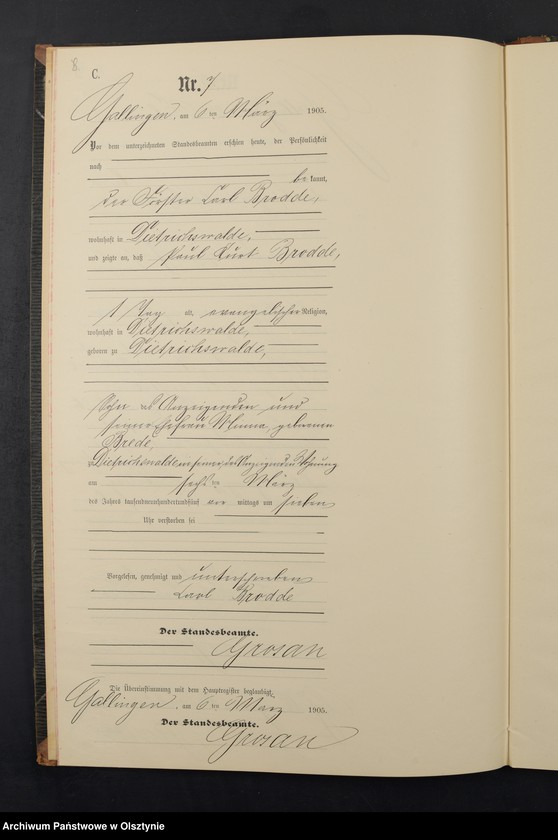 8.
C.
Nr. 7
Gallingen, am 6 ten März 1905.
Vor dem unterzeichneten Standesbeamten erschien heute, der Persönlichkeit
nach
be kannt,
der Förster Carl Brodde,
wohnhaft in Dietrichswalde,
und zeigte an, daß Paul Kurt Brodde,
1 Tag alt, evangelischer Religion,
wohnhaft in Dietrichswalde,
geboren zu Dietrichswalde,
Sohn des Anzeigenden und
seiner Ehefrau Minna, geborenen
Brede,
zu Dietrichswalde in seiner, des Anzeigenden Wohnung
am sechs ten März
des Jahres tausendneunhundertundfünf vor mittags um sieben
Uhr verstorben sei
Vorgelesen, genehmigt und unterschrieben
Carl Brodde
Der Standesbeamte.
Grosan
Die Übereinstimmung mit dem Hauptregister beglaubigt.
Gallingen, am 6 ten März 1905.
Der Standesbeamte.
Grosan
Archiwum Państwowe w Olsztynie